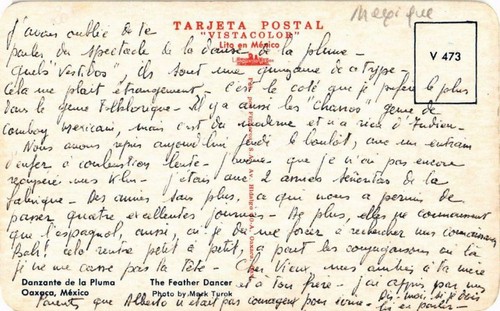 Mexique
TARJETA POSTAL
"VISTACOLOR"
Lito en México
V 473
J'avais oublié de te
parler du spectacle de la danse de la plume -
Quels "vestidos", ils sont une quinzaine de ce type -
Cela me plait étrangement - C'est le coté que je préfère le plus
dans le genre Folklorique - Il y a aussi les "Charros" genre de
Cowboy Mexicain, mais c'est du moderne et n'a rien d'Indien -
Nous avons repris aujourd'hui jeudi le boulot, avec un entrain
d'enfer à combustion lente - J'avoue que je n'ai pas encore
récupéré mes - J'étais avec 2 autres señoritas de la
fabrique - Des amies sans plus, ce qui nous a permis de
passer quatre excellentes journées - De plus, elles ne connaissent
que l'espagnol, aussi, ai je dû me forcer à rechercher mes connaissances
Bah! cela rentre petit à petit, à part les conjugaisons où là
je ne me casse pas la tête - Cher Vieux, mes amitiés à ta mère
et à ton frère - J'ai appris par mes
parents que Alberto n'était pas courageux pour
Dis-moi, si je dois
lui en parler -
Danzante de la Pluma
Oaxaca, México
The Feather Dancer
Photo by Mark Turok